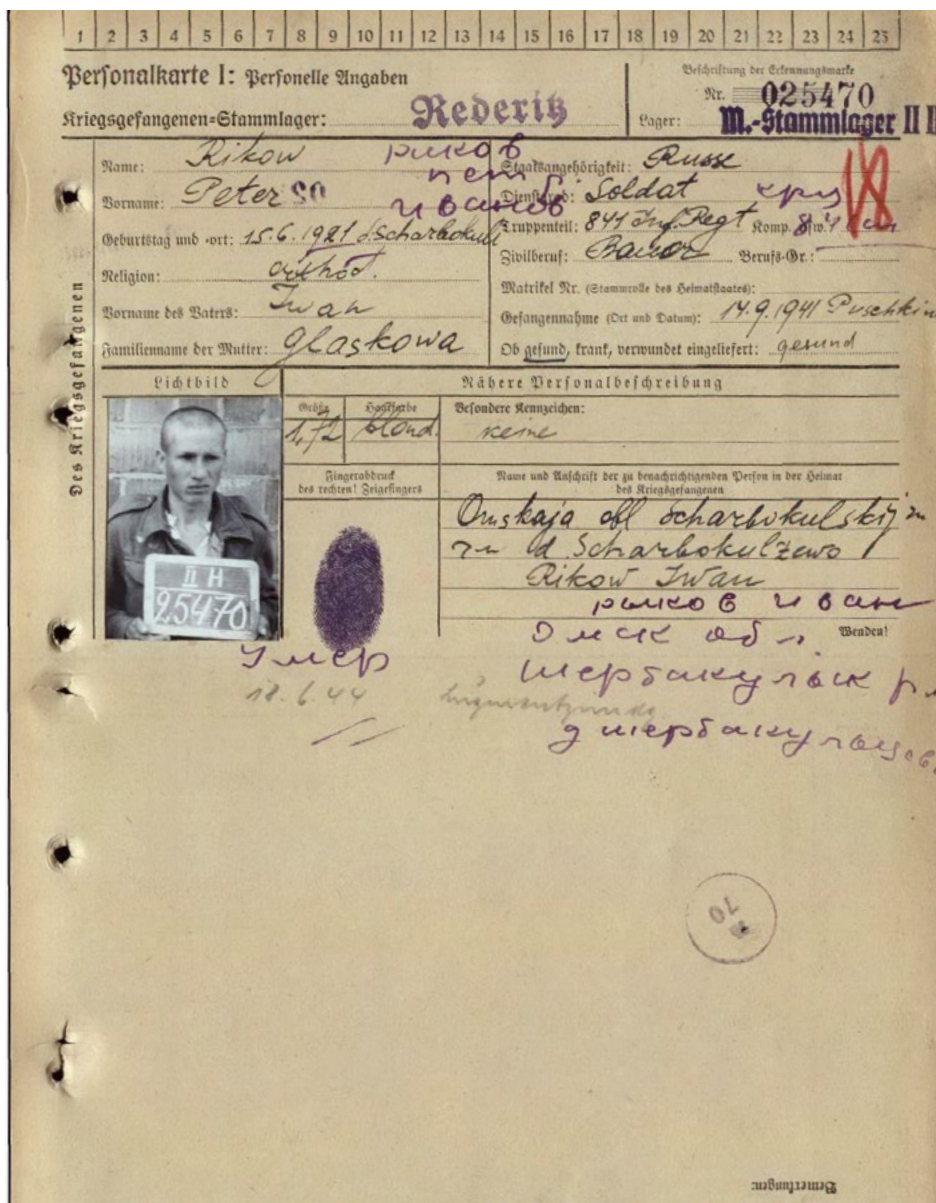 1 2 3 4 5 6 7 8 9 10 11 12 13 14 15 16 17 18 19 20 21 22 23 24 25
Personalkarte I: Personelle Angaben
Kriegsgefangenen=Stammlager: Rederitz
Beschriftung der Erkennungsmarke
Nr. 025470
Lager: M.-Stammlager II
Des Kriegsgefangenen
Name: Rikow
рыков
Vorname: Peter SO
пет
иванов
Geburtstag und =ort: 15.6.1921
Religion: orthod.
Vorname des Vaters: Iwan
Familienname der Mutter: Glaskowa
Staatsangehörigkeit: Russe
Dienstgrad: Soldat
Truppenteil: 841 Inf. Regt Komp. usw.:
Zivilberuf: Bauer Berufs=Gr.:
Matrikel Nr. (Stammrolle des Heimatstaates):
Gefangennahme (Ort und Datum): 14.9.1941 Puschkin
Ob gesund, krank, verwundet eingeliefert: gesund
Lichtbild
II H
25470
Nähere Personalbeschreibung
Größe Haarfarbe Besondere Kennzeichen:
1,72 blond. keine
Fingerabdruck
des rechten! Zeigefingers
Name und Anschrift der zu benachrichtigenden Person in der Heimat
des Kriegsgefangenen
Omskaja obl Scharbokulskij
d Scharbokulzewo
Rikow Iwan
рыков иван
Wenden!
Умер
Омск обл
18.6.44
70
Bemerkungen: